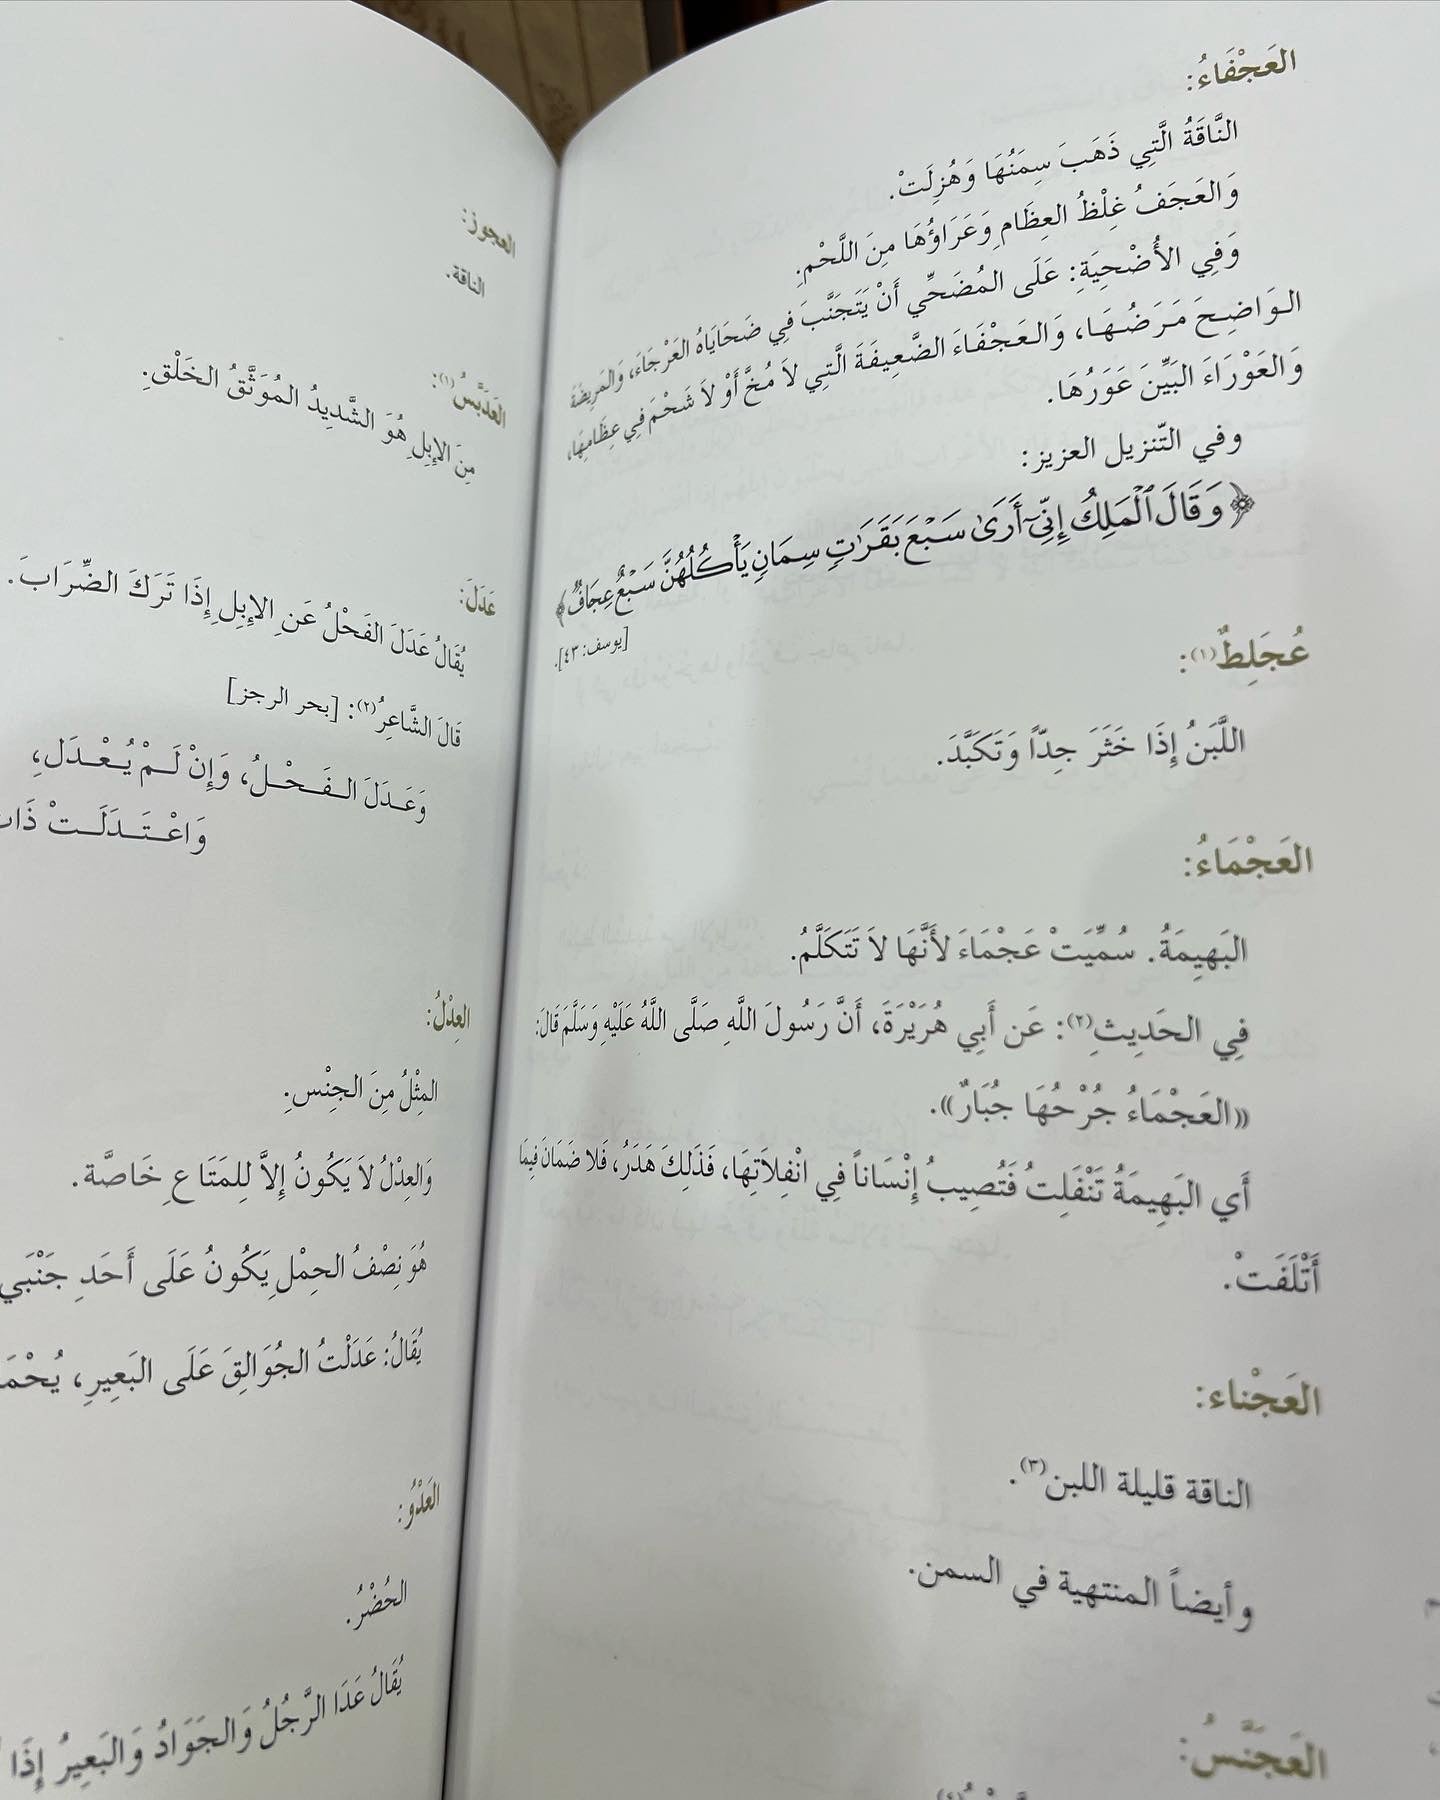 العَجْفَاءُ:
النَّاقَةُ الَّتِي ذَهَبَ سِمَنُهَا وَهُزِلَتْ.
وَالعَجَفُ غِلْظُ العِظَامِ وَعَرَاؤُهَا مِنَ اللَّحْمِ.
وَفِي الأُضْحِيَةِ: عَلَى المُضَحِّي أَنْ يَتَجَنَّبَ فِي ضَحَايَاهُ العَرْجَاءَ، وَالمَرِيضَةَ
الوَاضِحَ مَرَضُهَا، وَالعَجْفَاءَ الضَّعِيفَةَ الَّتِي لاَ مُخَّ أَوْ لاَ شَحْمَ فِي عِظَامِهَا،
وَالعَوْرَاءَ البَيِّنَ عَوَرُهَا.
وفي التّنزيل العزيز:
﴿وَقَالَ ٱلْمَلِكُ إِنِّيٓ أَرَىٰ سَبْعَ بَقَرَٰتٍ سِمَانٍ يَأْكُلُهُنَّ سَبْعٌ عِجَافٌ﴾
[يوسف: ٤٣].
عُجَلِطٌ(١):
اللَّبَنُ إِذَا خَثَرَ جِدّاً وَتَكَبَّدَ.
العَجْمَاءُ:
البَهِيمَةُ. سُمِّيَتْ عَجْمَاءَ لأَنَّهَا لاَ تَتَكَلَّمُ.
فِي الحَدِيثِ(٢): عَن أَبِي هُرَيْرَةَ، أَنَّ رَسُولَ اللَّهِ صَلَّى اللَّهُ عَلَيْهِ وَسَلَّمَ قَالَ:
«العَجْمَاءُ جُرْحُهَا جُبَارٌ».
أَي البَهِيمَةُ تَنْفَلِتُ فَتُصِيبُ إِنْسَاناً فِي انْفِلاَتِهَا، فَذَلِكَ هَدَرٌ، فَلا ضَمَانَ فِيمَا
أَتْلَفَتْ.
العَجْناء:
الناقة قليلة اللبن(٣).
وأيضاً المنتهية في السمن.
العَجَنَّسُ:
العجوز:
الناقة.
العَدَبَّسُ(١):
مِنَ الإِبِلِ هُوَ الشَّدِيدُ المُوَثَّقُ الخَلْقِ.
عَدَلَ:
يُقَالُ عَدَلَ الفَحْلُ عَنِ الإِبِلِ إِذَا تَرَكَ الضِّرَابَ.
قَالَ الشَّاعِرُ(٢): [بحر الرجز]
وَعَدَلَ الفَحْلُ، وَإِنْ لَمْ يُعْدَلِ،
وَاعْتَدَلَتْ
العِدْلُ:
المِثْلُ مِنَ الجِنْسِ.
وَالعِدْلُ لاَ يَكُونُ إِلاَّ لِلمَتَاعِ خَاصَّة.
هُوَ نِصْفُ الحِمْلِ يَكُونُ عَلَى أَحَدِ جَنْبَي
يُقَالُ: عَدَلْتُ الجُوَالِقَ عَلَى البَعِيرِ،
العَدْوُ:
الحُضْرُ.
يُقَالُ عَدَا الرَّجُلُ وَالجَوَادُ وَالبَعِيرُ إِذَا